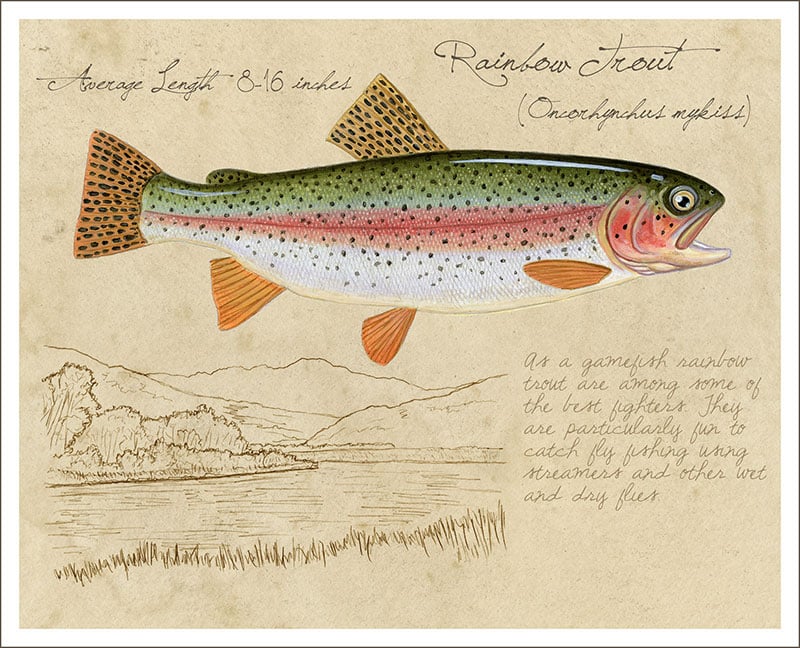 Rainbow Trout
Average Length 8-16 inches
(Oncorhynchus mykiss)
As a gamefish rainbow
trout are among some of
the best fighters. They
are particularly fun to
catch fly fishing using
streamers and other wet
and dry flies.